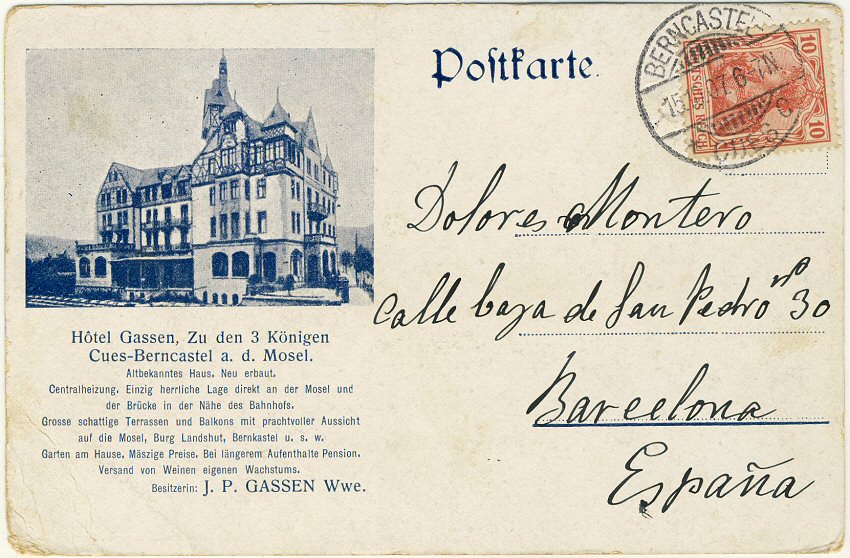 Postkarte.
BERNCASTEL
CUES
10 10
Dolores Montero
calle baja de San Pedro nº 30
Barcelona
España
Hôtel Gassen, Zu den 3 Königen
Cues-Berncastel a. d. Mosel.
Altbekanntes Haus. Neu erbaut.
Centralheizung. Einzig herrliche Lage direkt an der Mosel und
der Brücke in der Nähe des Bahnhofs.
Grosse schattige Terrassen und Balkons mit prachtvoller Aussicht
auf die Mosel, Burg Landshut, Bernkastel u. s. w.
Garten am Hause. Mäszige Preise. Bei längerem Aufenthalte Pension.
Versand von Weinen eigenen Wachstums.
Besitzerin: J. P. GASSEN Wwe.